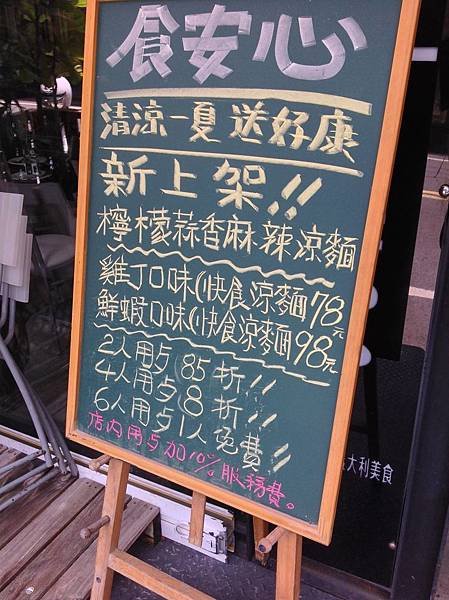 食安心
清涼一夏 送好康
新上架!!
檸檬蒜香麻辣涼麵
雞丁口味(快食涼麵78元
鮮蝦口味(快食涼麵98元
2人用歺 85折!!
4人用歺 8折!!
6人用歺1人免費!!
店內用歺加10%服務費。
大利美食